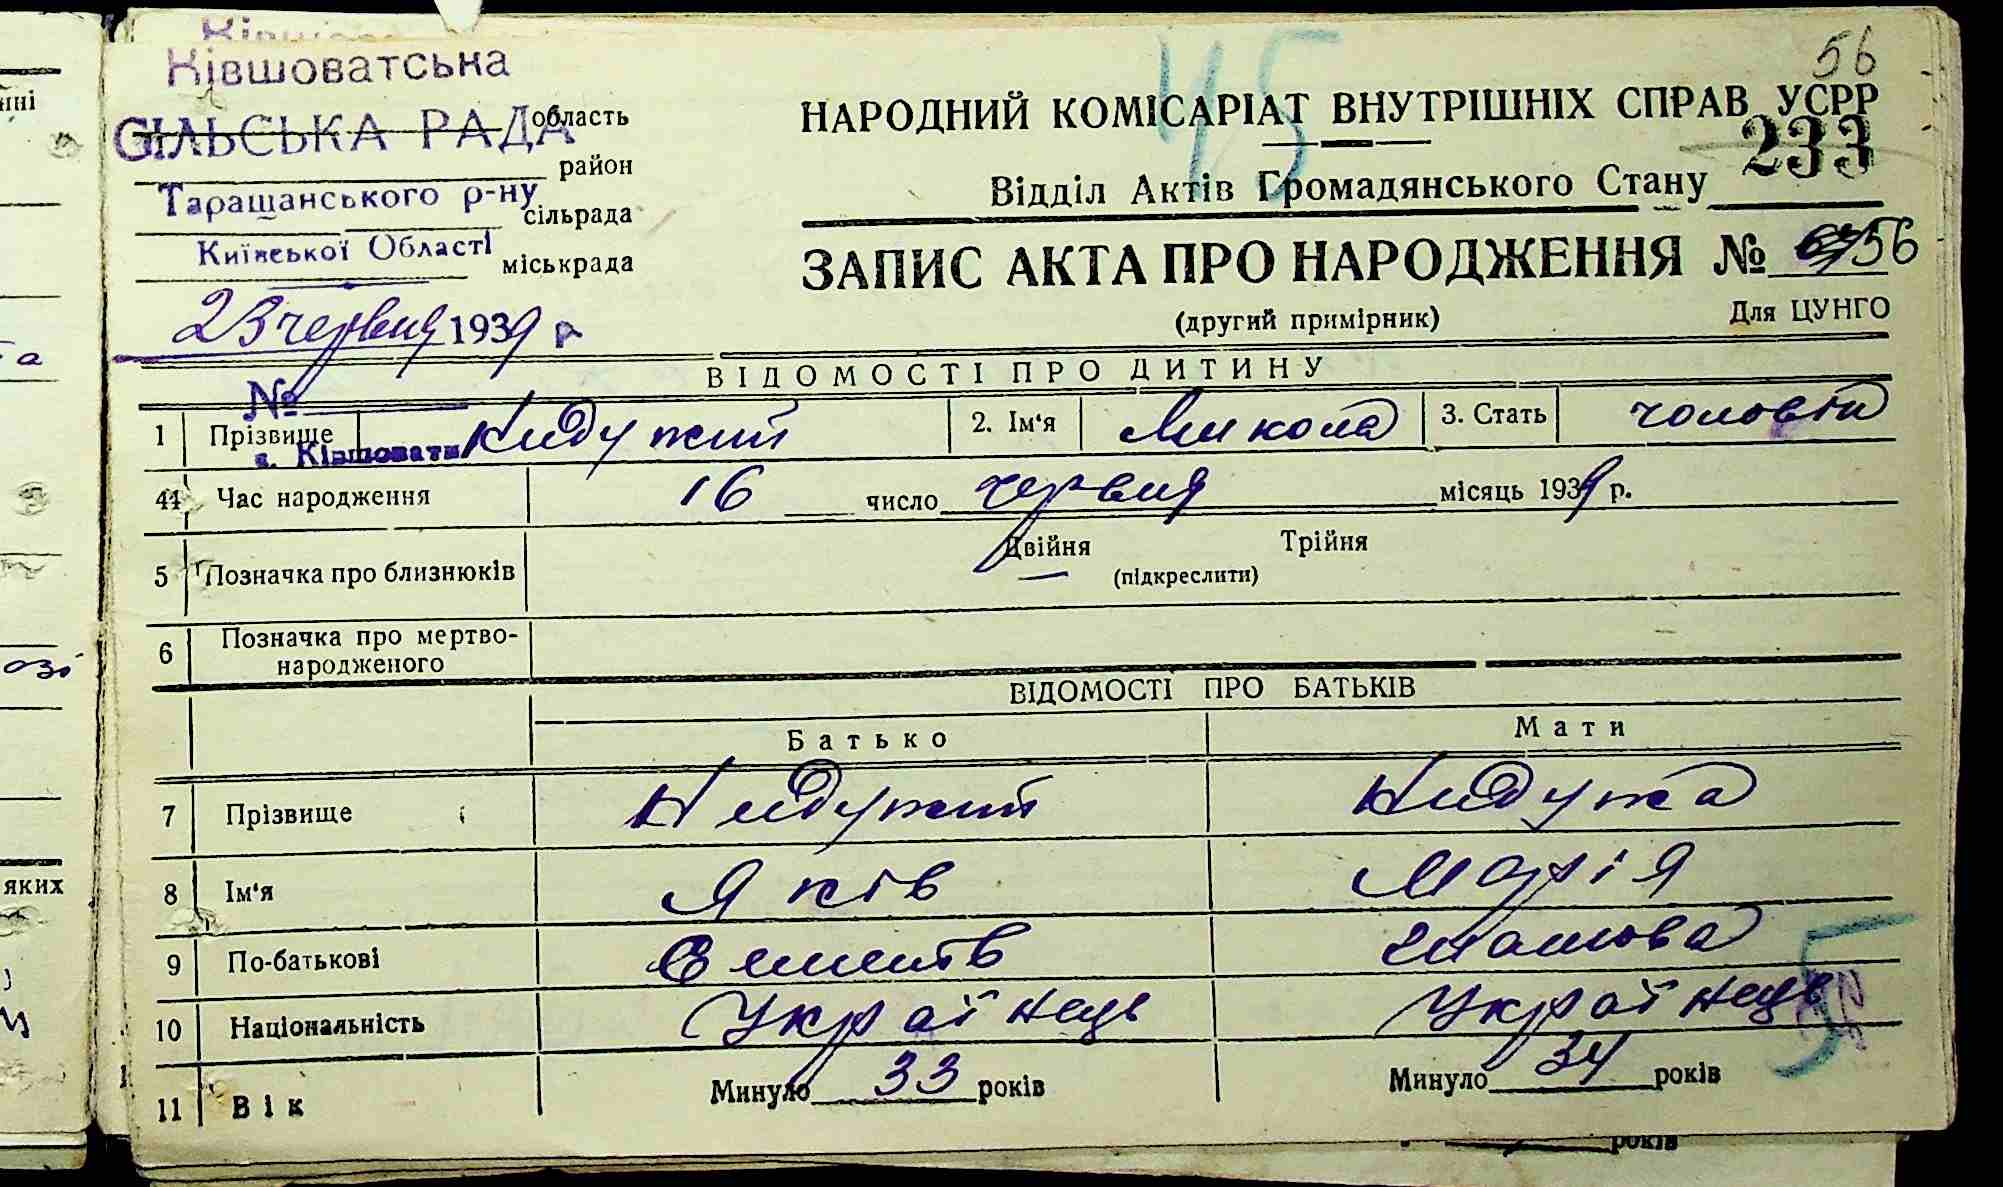 56
Ківшоватська
СІЛЬСЬКА РАДА область
район
Таращанського р-ну
сільрада
Київської Області
міськрада
23 червня 1939 р
№
с. Ківшовати
45
НАРОДНИЙ КОМІСАРІАТ ВНУТРІШНІХ СПРАВ УСРР
233
Відділ Актів Громадянського Стану
ЗАПИС АКТА ПРО НАРОДЖЕННЯ № 56
(другий примірник)
Для ЦУНГО
ВІДОМОСТІ ПРО ДИТИНУ
1 Прізвище Кидужий 2. Ім'я Микола 3. Стать чоловіч
44 Час народження 16 число червня місяць 1939 р.
5 Позначка про близнюків Двійня Трійня
(підкреслити)
6 Позначка про мертво-
народженого
ВІДОМОСТІ ПРО БАТЬКІВ
Батько Мати
7 Прізвище Кидужий Кидужа
8 Ім'я Яків Марія
9 По-батькові
10 Національність Українець Українець
11 Вік Минуло 33 років Минуло 34 років
5
яких
років